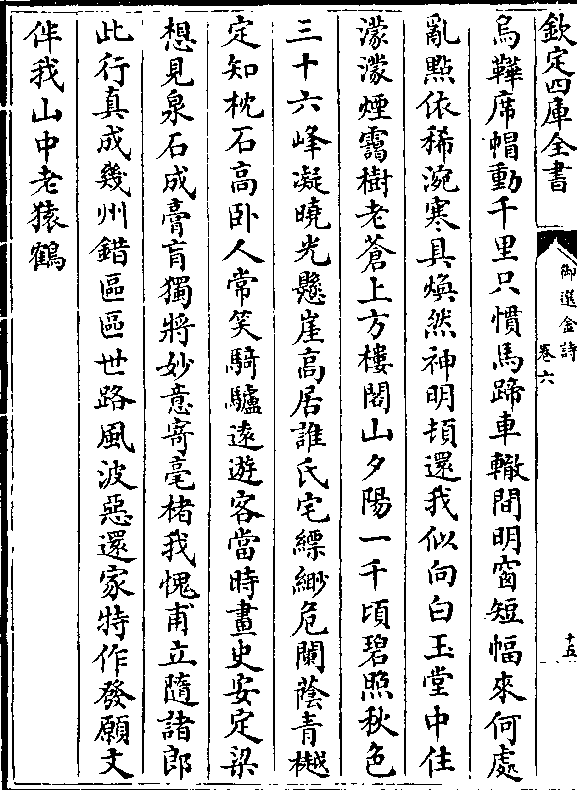 欽定四庫全書
御選金詩
卷六
十五
烏鞾席帽動千里只慣馬蹄車轍間明窗短幅來何處
亂點依稀涴寒具煥然神明頓還我似向白玉堂中住
濛濛煙靄樹老蒼上方樓閣山夕陽一千頃碧照秋色
三十六峰凝曉光懸崖高居誰氏宅縹緲危闌蔭青樾
定知枕石高卧人常笑騎驢遠遊客當時畫史安定梁
想見泉石成膏肓獨將妙意寄毫楮我愧甫立隨諸郎
此行真成幾州錯區區世路風波惡還家特作發願文
伴我山中老猿鶴